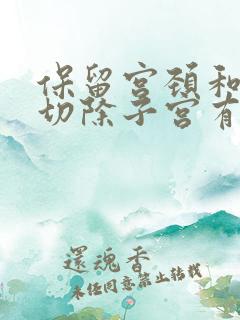 保留宫颈和
切除子宫有
還魂香
未经同意禁止转载